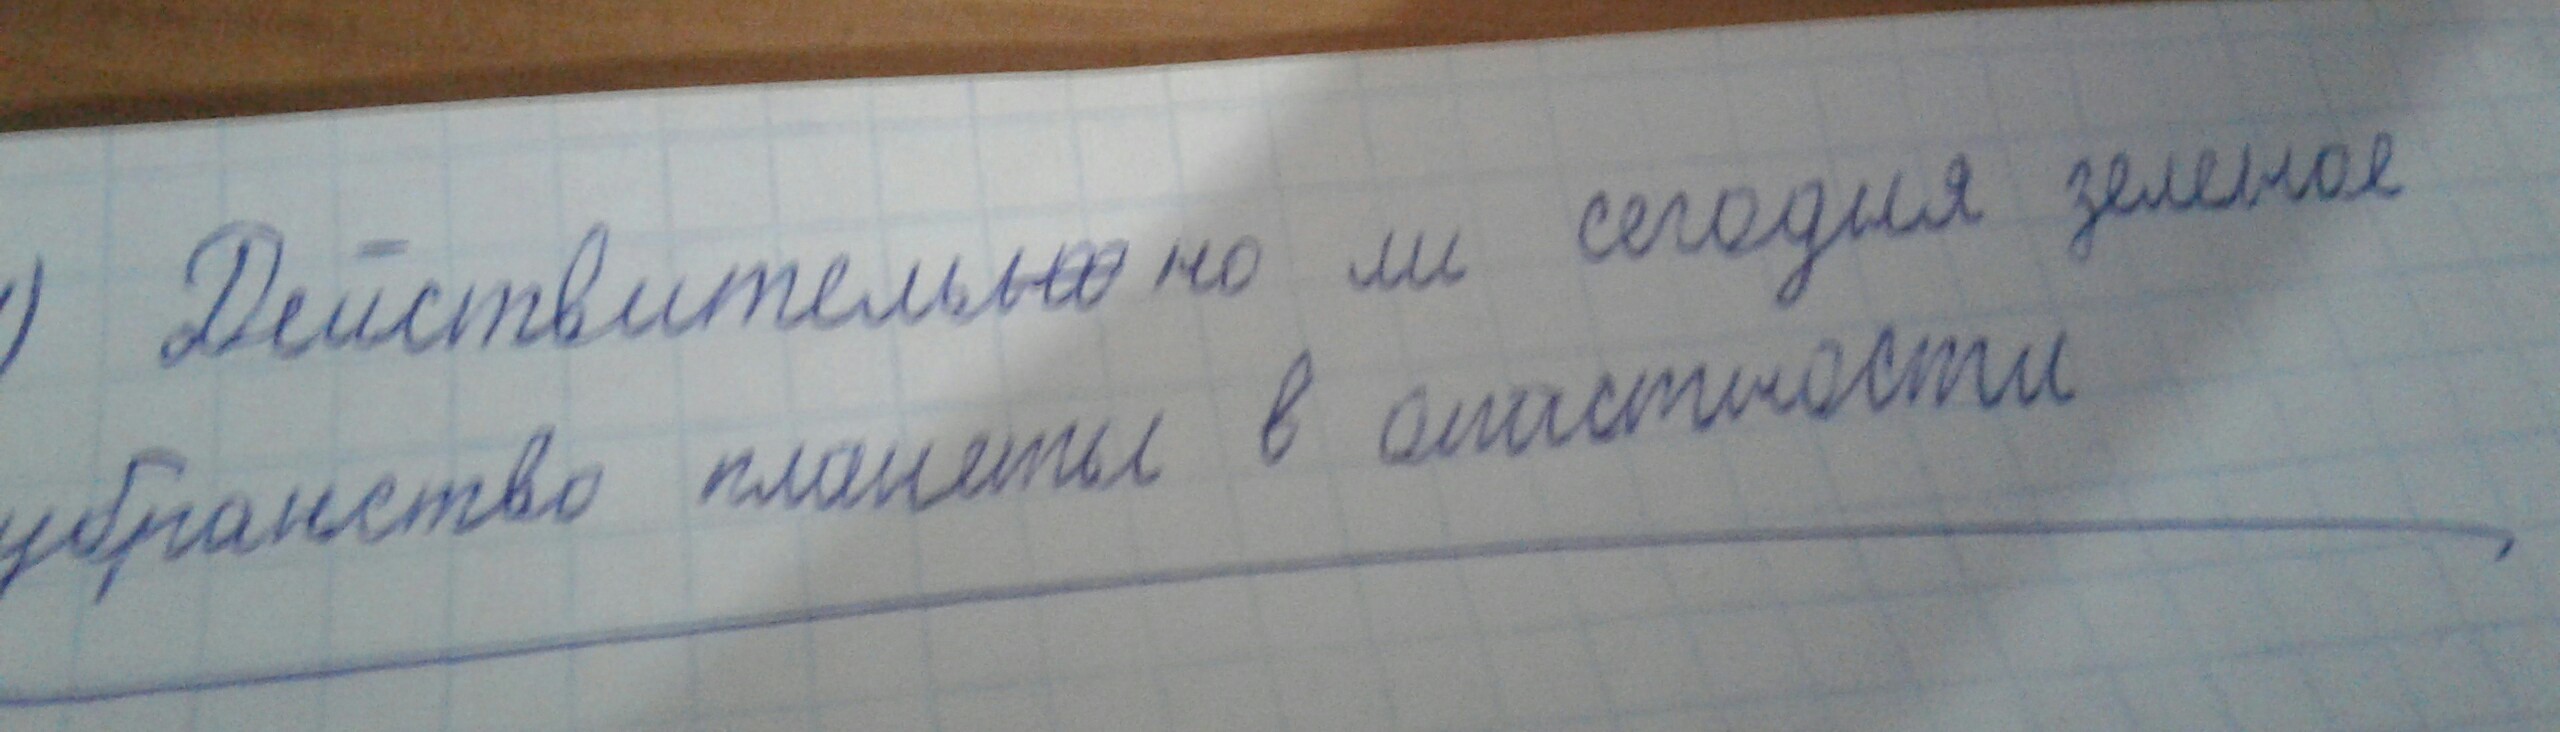 ) Действительно ли сегодня зеленое
убранство планеты в опастности